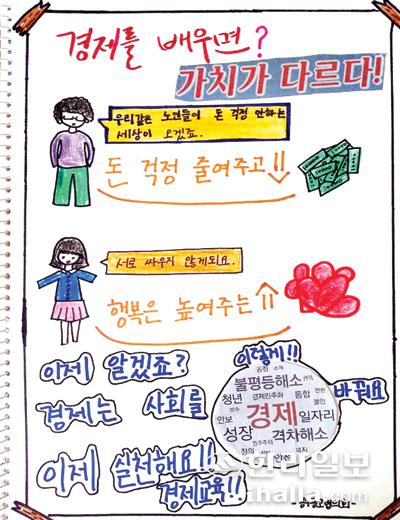 경제를 배우면?
가치가 다르다!
우리같은 돈 걱정 안하는
세상이 오겠죠.
돈 걱정 줄여주고!!
서로 싸우지 않게되요.
행복은 높여주는
이제 알겠죠? 이렇게!!
경제는 사회를 바꿔요
불평등해소
청년 경제민주화 통합
안보 경제 일자리
성장 격차해소
민주주의
안전
이제 실천해요!!
경제교육!!
한라일보
ihalla.com